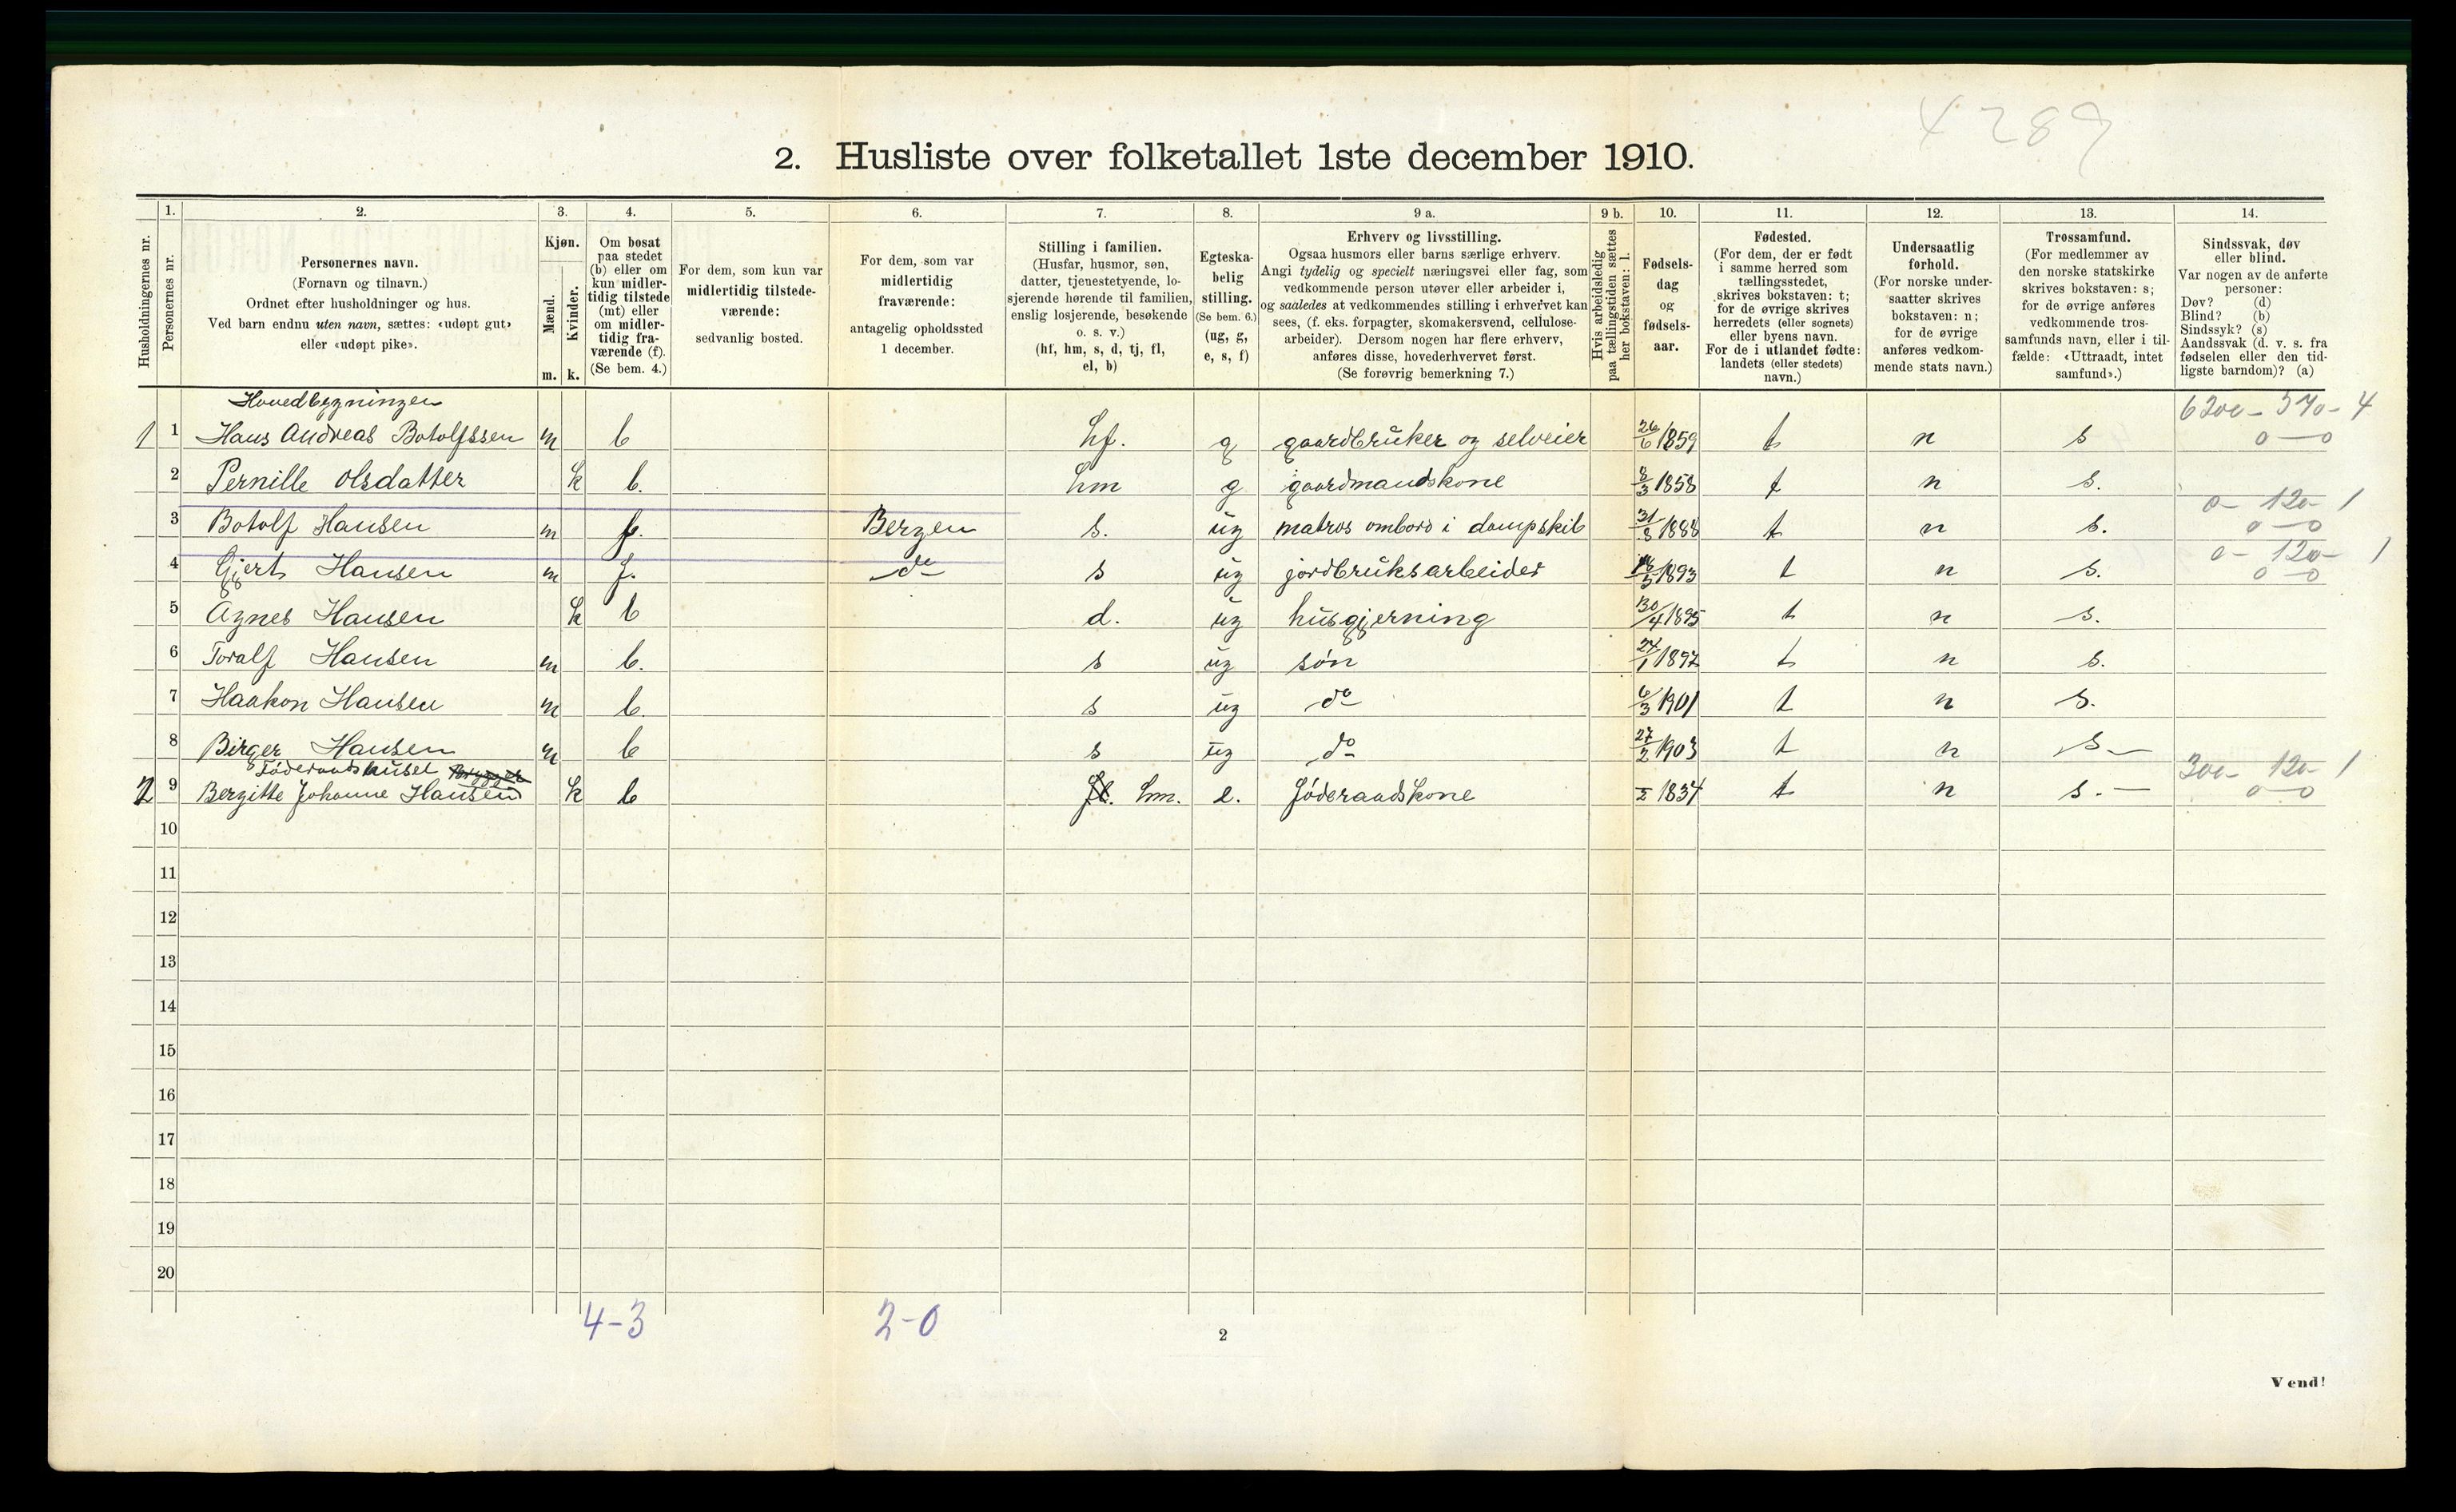 4289
2. Husliste over folketallet 1ste december 1910.
Husholdningernes nr.
1. Personernes nr.
2. Personernes navn. (Fornavn og tilnavn.) Ordnet efter husholdninger og hus. Ved barn endnu uten navn, sættes: «udøpt gut» eller «udøpt pike».
3. Kjøn. Mænd. m. Kvinder. k.
4. Om bosat paa stedet (b) eller om kun midlertidig tilstede (mt) eller om midlertidig fraværende (f). (Se bem. 4.)
5. For dem, som kun var midlertidig tilstedeværende: sedvanlig bosted.
6. For dem, som var midlertidig fraværende: antagelig opholdssted 1 december.
7. Stilling i familien. (Husfar, husmor, søn, datter, tjenestetyende, losjerende hørende til familien, enslig losjerende, besøkende o. s. v.) (hf, hm, s, d, tj, fl, el, b)
8. Egteskabelig stilling. (Se bem. 6.) (ug, g, e, s, f)
9 a. Erhverv og livsstilling. Ogsaa husmors eller barns særlige erhverv. Angi tydelig og specielt næringsvei eller fag, som vedkommende person utøver eller arbeider i, og saaledes at vedkommendes stilling i erhvervet kan sees, (f. eks. forpagter, skomakersvend, cellulosearbeider). Dersom nogen har flere erhverv, anføres disse, hovederhvervet først. (Se forøvrig bemerkning 7.)
9 b. Hvis arbeidsledig paa tællingstiden sættes her bokstaven: l.
10. Fødselsdag og fødselsaar.
11. Fødested. (For dem, der er født i samme herred som tællingsstedet, skrives bokstaven: t; for de øvrige skrives herredets (eller sognets) eller byens navn. For de i utlandet fødte: landets (eller stedets) navn.)
12. Undersaatlig forhold. (For norske undersaatter skrives bokstaven: n; for de øvrige anføres vedkommende stats navn.)
13. Trossamfund. (For medlemmer av den norske statskirke skrives bokstaven: s; for de øvrige anføres vedkommende trossamfunds navn, eller i tilfælde: «Uttraadt, intet samfund».)
14. Sindssvak, døv eller blind. Var nogen av de anførte personer: Døv? (d) Blind? (b) Sindssyk? (s) Aandssvak (d. v. s. fra fødselen eller den tidligste barndom)? (a)
Hovedbygningen 6200 - 570 - 4
1 1 Hans Andreas Botolfssen m b hf. g gaardbruker og selveier 26/6 1859 t n s 0 - 0
2 Pernille Olsdatter k b. hm g gaardmandskone 8/3 1858 t n s.
0 - 120 - 1
3 Botolf Hansen m f. Bergen s. ug matros ombord i dampskib 31/8 1888 t n s. 0 - 0
0 - 120 - 1
4 Gjert Hansen m f. do s ug jordbruksarbeider 1893 t n s. 0 - 0
5 Agnes Hansen k b d. ug husgjerning 30/4 1895 t n s.
6 Toralf Hansen m b. s ug søn 27/1 1897 t n s.
7 Haakon Hansen m b. s ug do 6/3 1901 t n s.
8 Birger Hansen m b s ug do 27/2 1903 t n s -
Føderaadshuset 300 - 120 - 1
2 9 Bergitte Johanne Hansen k b fl. hm. e. føderaadskone 1837 t n s. - 0 - 0
10
11
12
13
14
15
16
17
18
19
20
4-3 2-0
2
Vend!